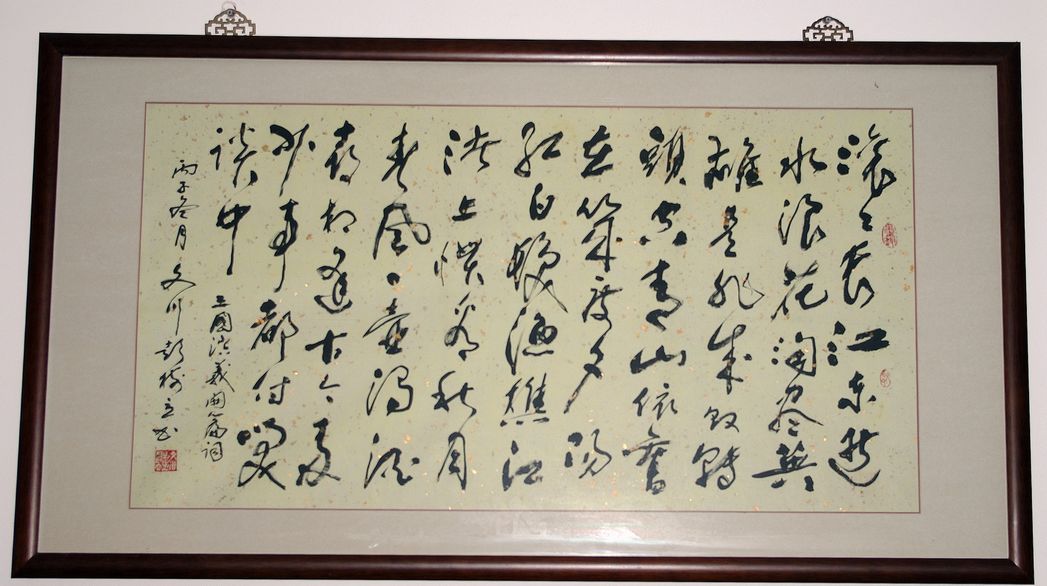 滚々长江东逝
水浪花淘尽英
雄是非成败转
頭空青山依舊
在几度夕阳
红白髮渔樵江
渚上惯看秋月
春風一壶浊酒
喜相逢古今多
少事都付笑
谈中
三國演義開篇词
丙子冬月 文川彭 立书